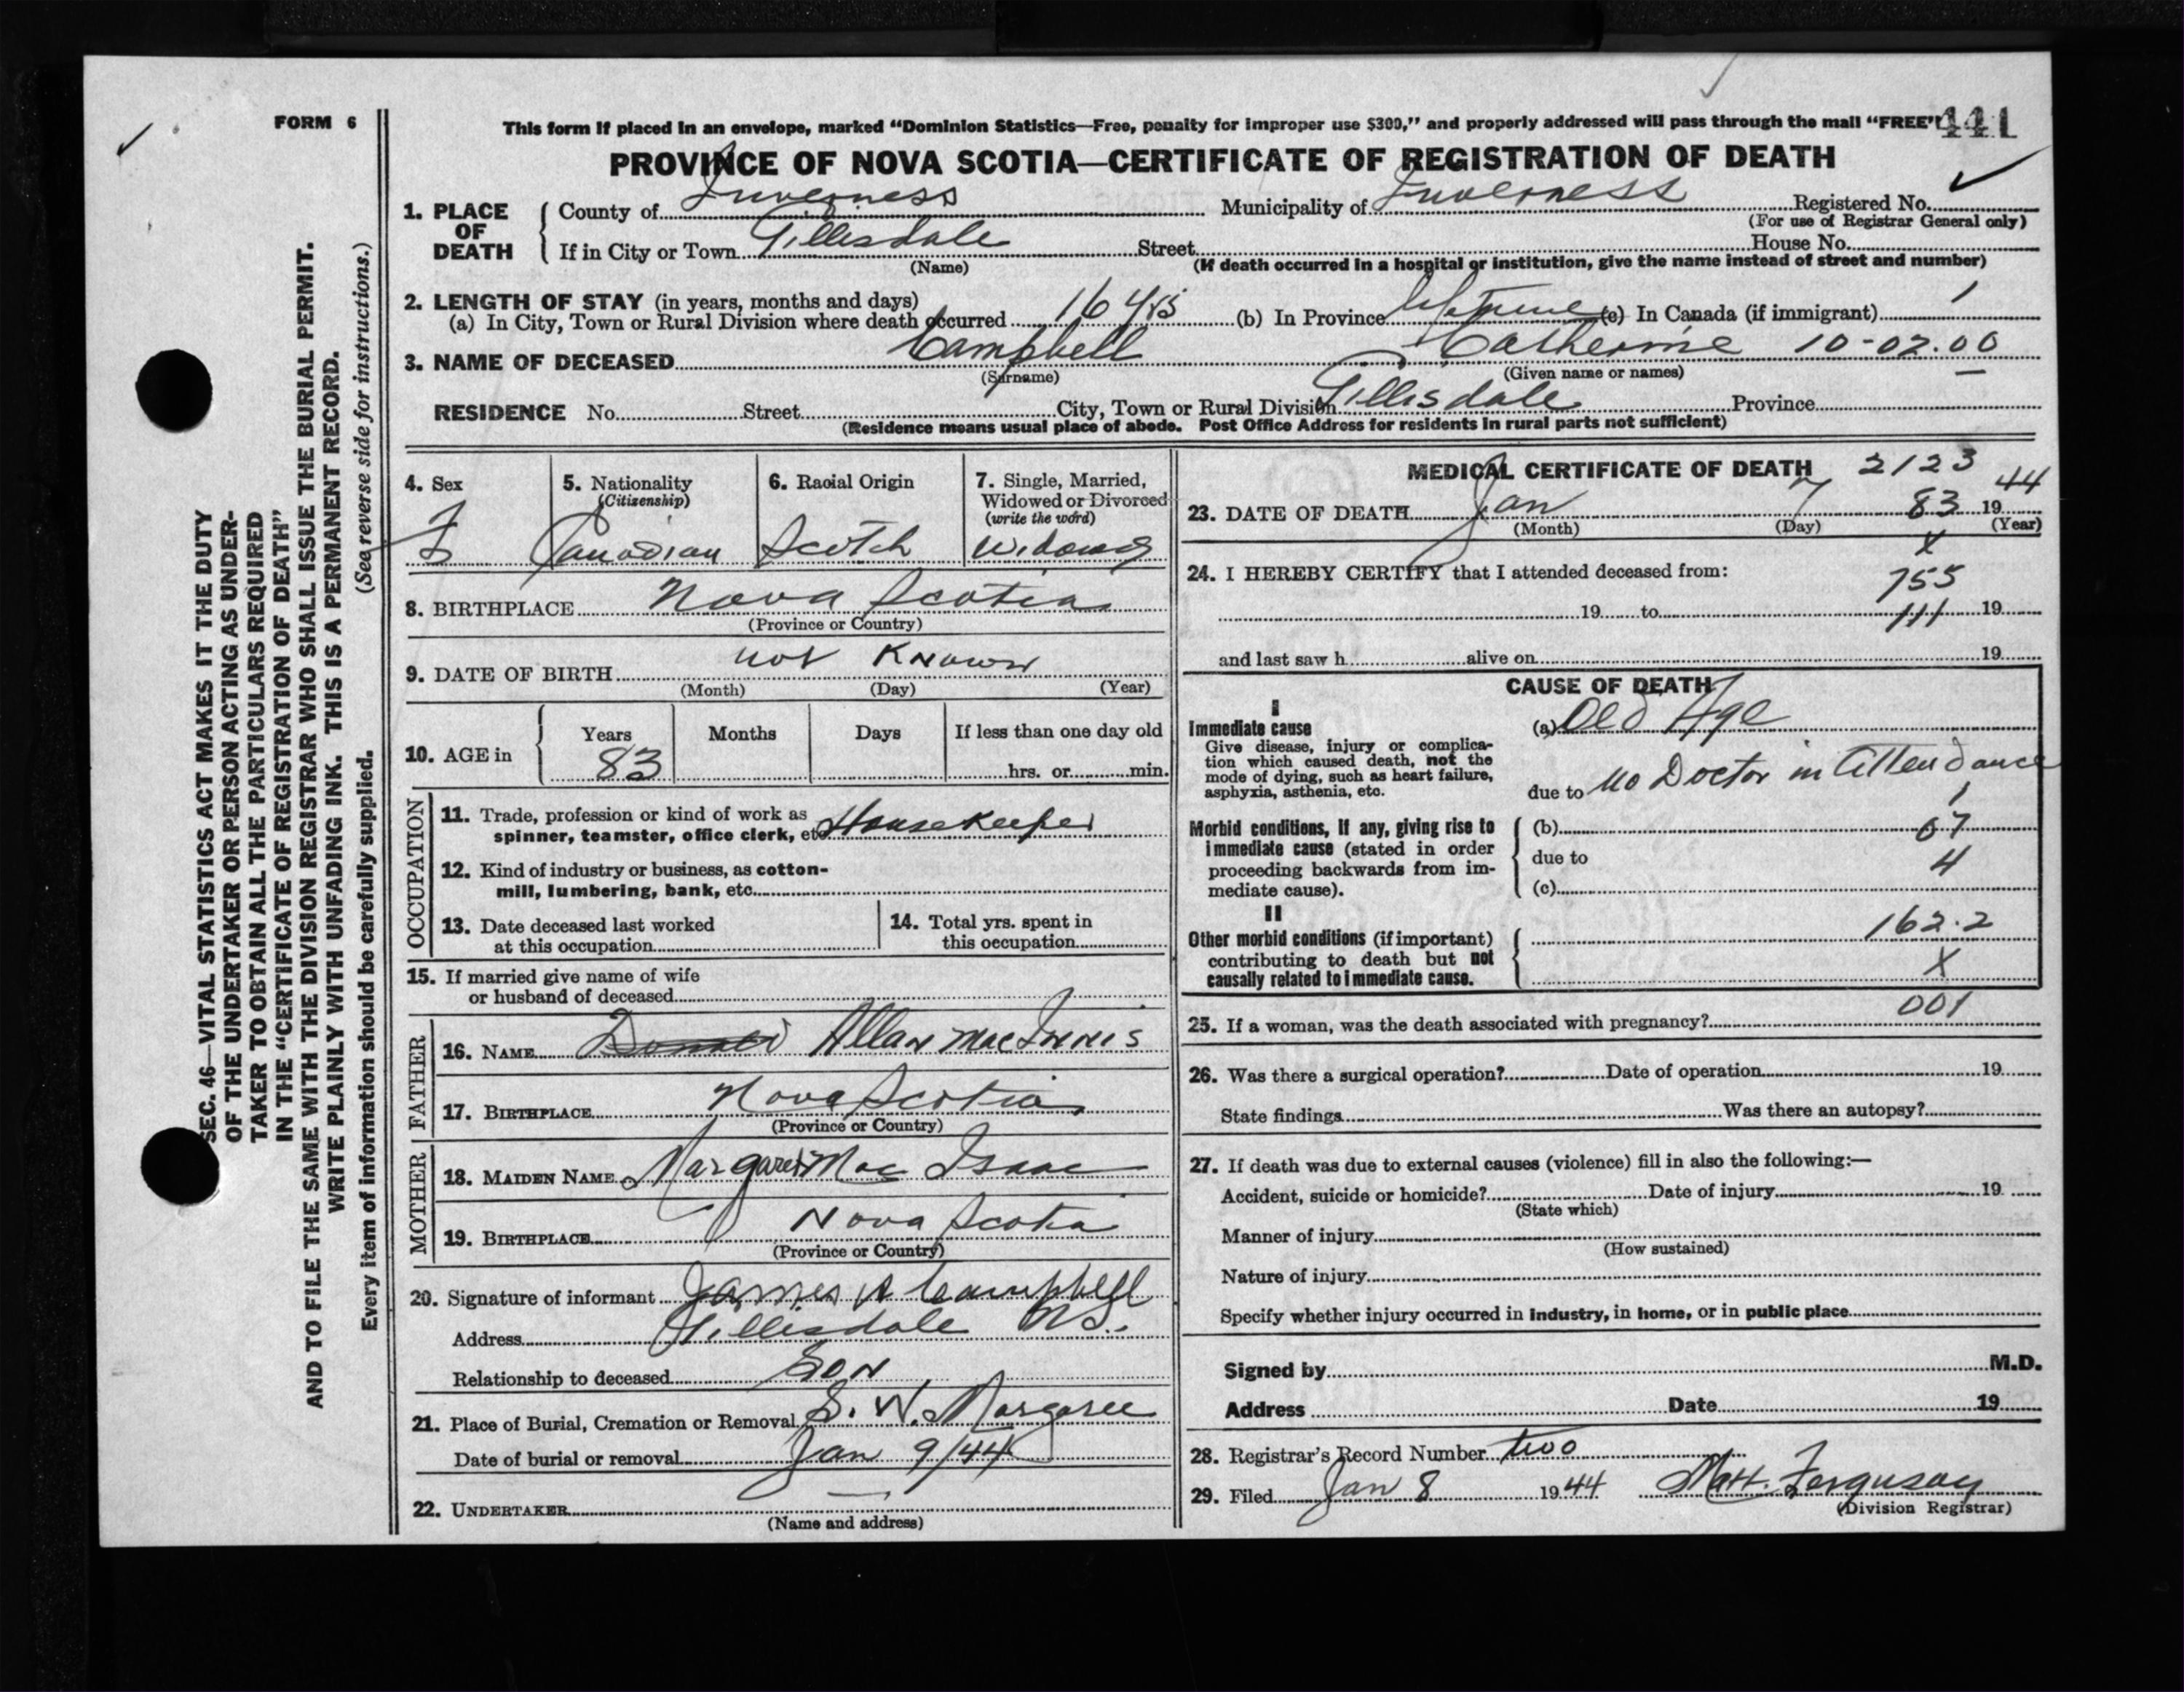 FORM 6
This form if placed in an envelope, marked "Dominion Statistics—Free, penalty for improper use $300," and properly addressed will pass through the mail "FREE" 441
PROVINCE OF NOVA SCOTIA—CERTIFICATE OF REGISTRATION OF DEATH
1. PLACE OF DEATH
County of Inverness Municipality of Inverness Registered No.
(For use of Registrar General only)
If in City or Town Gillisdale Street House No.
(Name) (If death occurred in a hospital or institution, give the name instead of street and number)
2. LENGTH OF STAY (in years, months and days)
(a) In City, Town or Rural Division where death occurred 16 yrs (b) In Province Lifetime (c) In Canada (if immigrant) 1
3. NAME OF DECEASED Campbell Catherine 10-02.00
(Surname) (Given name or names)
RESIDENCE No. Street City, Town or Rural Division Gillisdale Province
(Residence means usual place of abode. Post Office Address for residents in rural parts not sufficient)
4. Sex F
5. Nationality (Citizenship) Canadian
6. Racial Origin Scotch
7. Single, Married, Widowed or Divorced (write the word) Widowed
8. BIRTHPLACE Nova Scotia
(Province or Country)
9. DATE OF BIRTH not Known
(Month) (Day) (Year)
10. AGE in Years 83 Months Days If less than one day old
hrs. or min.
OCCUPATION
11. Trade, profession or kind of work as
spinner, teamster, office clerk, etc Housekeeper
12. Kind of industry or business, as cotton-
mill, lumbering, bank, etc.
13. Date deceased last worked
at this occupation
14. Total yrs. spent in
this occupation
15. If married give name of wife
or husband of deceased
FATHER
16. NAME Allan MacInnis
17. BIRTHPLACE Nova Scotia
(Province or Country)
MOTHER
18. MAIDEN NAME Margaret Mac Isaac
19. BIRTHPLACE Nova Scotia
(Province or Country)
20. Signature of informant James A Campbell
Address Gillisdale N.S.
Relationship to deceased Son
21. Place of Burial, Cremation or Removal S. W. Margaree
Date of burial or removal Jan 9/44
22. UNDERTAKER —
(Name and address)
MEDICAL CERTIFICATE OF DEATH 2123
23. DATE OF DEATH Jan 7 83 19 44
(Month) (Day) (Year)
X
24. I HEREBY CERTIFY that I attended deceased from: 755
19 to 111 19
and last saw h alive on 19
CAUSE OF DEATH
I
Immediate cause
Give disease, injury or complica-
tion which caused death, not the
mode of dying, such as heart failure,
asphyxia, asthenia, etc.
(a) Old Age
due to No Doctor in Attendance
1
Morbid conditions, if any, giving rise to
immediate cause (stated in order
proceeding backwards from im-
mediate cause).
(b) 67
due to 4
(c)
II
Other morbid conditions (if important)
contributing to death but not
causally related to immediate cause.
162.2
X
25. If a woman, was the death associated with pregnancy? 001
26. Was there a surgical operation? Date of operation 19
State findings Was there an autopsy?
27. If death was due to external causes (violence) fill in also the following:—
Accident, suicide or homicide? Date of injury 19
(State which)
Manner of injury
(How sustained)
Nature of injury
Specify whether injury occurred in industry, in home, or in public place
Signed by M.D.
Address Date 19
28. Registrar's Record Number two
29. Filed Jan 8 1944 Matt. Ferguson
(Division Registrar)
SEC. 46—VITAL STATISTICS ACT MAKES IT THE DUTY
OF THE UNDERTAKER OR PERSON ACTING AS UNDER-
TAKER TO OBTAIN ALL THE PARTICULARS REQUIRED
IN THE "CERTIFICATE OF REGISTRATION OF DEATH"
AND TO FILE THE SAME WITH THE DIVISION REGISTRAR WHO SHALL ISSUE THE BURIAL PERMIT.
WRITE PLAINLY WITH UNFADING INK. THIS IS A PERMANENT RECORD.
Every item of information should be carefully supplied. (See reverse side for instructions.)